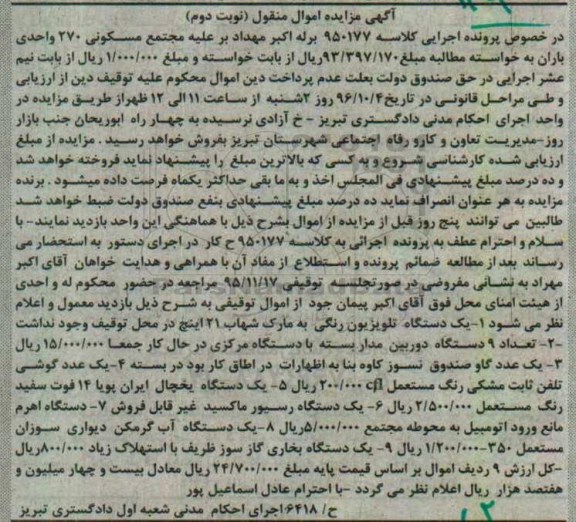 آگهی مزایده اموال منقول (نوبت دوم)
در خصوص پرونده اجرایی کلاسه ۹۵۰۱۷۷ برله اکبر مهداد بر علیه مجتمع مسکونی ۲۷۰ واحدی
باران به خواسته مطالبه مبلغ ۹۳/۳۹۷/۱۷۰ریال از بابت خواسته و مبلغ ۱/۰۰۰/۰۰۰ ریال از بابت نیم
عشر اجرایی در حق صندوق دولت بعلت عدم پرداخت دین اموال محکوم علیه توقیف دین از ارزیابی
و طی مراحل قانونی در تاریخ ۹۶/۱۰/۴ روز ۲شنبه از ساعت ۱۱ الی ۱۲ ظهراز طریق مزایده در
واحد اجرای احکام مدنی دادگستری تبریز - خ آزادی نرسیده به چهار راه ابوریحان جنب بازار
روز-مدیریت تعاون و کارو رفاه اجتماعی شهرستان تبریز بفروش خواهد رسید . مزایده از مبلغ
ارزیابی شده کارشناسی شروع و به کسی که بالاترین مبلغ را پیشنهاد نماید فروخته خواهد شد
و ده درصد مبلغ پیشنهادی فی المجلس اخذ و به ما بقی حداکثر یکماه فرصت داده میشود . برنده
مزایده به هر عنوان انصراف نماید ده درصد مبلغ پیشنهادی بنفع صندوق دولت ضبط خواهد شد
طالبین می توانند پنج روز قبل از مزایده از اموال بشرح ذیل با هماهنگی این واحد بازدید نمایند- با
سلام و احترام عطف به پرونده اجرائی به کلاسه ۹۵۰۱۷۷ ح کار در اجرای دستور به استحضار می
رساند بعد از مطالعه ضمائم پرونده و استطلاع از مفاد آن با همراهی و هدایت خواهان آقای اکبر
مهراد به نشانی مفروضی در صورتجلسه توقیفی ۹۵/۱۱/۱۷ مراجعه در حضور محکوم له و احدی
از هیئت امنای محل فوق آقای اکبر پیمان جود از اموال توقیفی به شرح ذیل بازدید معمول و اعلام
نظر می شود ۱-یک دستگاه تلویزیون رنگی به مارک شهاب ۲۱ اینچ در محل توقیف وجود نداشت
-۲- تعداد ۹ دستگاه دوربین مدار بسته با دستگاه مرکزی در حال کار جمعا ۱۵/۰۰۰/۰۰۰ ریال
۳- یک عدد گاو صندوق نسوز کاوه بنا به اظهارات در اطاق کار بود در بسته ۴-یک عدد گوشی
تلفن ثابت مشکی رنگ مستعمل cfl ۲۰۰/۰۰۰ ریال ۵- یک دستگاه یخچال ایران پویا ۱۴ فوت سفید
رنگ مستعمل ۲/۵۰۰/۰۰۰ ریال ۶- یک دستگاه رسیور ماکسید غیر قابل فروش ۷- دستگاه اهرم
مانع ورود اتومبیل به محوطه مجتمع ۵/۰۰۰/۰۰۰ریال ۸-یک دستگاه آب گرمکن دیواری سوزان
مستعمل ۳۵۰-۱/۲۰۰/۰۰۰ ریال ۹- یک دستگاه بخاری گاز سوز ظریف با استهلاک زیاد ۸۰۰/۰۰۰ریال
-کل ارزش ۹ ردیف اموال بر اساس قیمت پایه مبلغ ۲۴/۷۰۰/۰۰۰ ریال معادل بیست و چهار میلیون و
هفتصد هزار ریال اعلام نظر می گردد -با احترام عادل اسماعیل پور
ح/ ۶۴۱۸ اجرای احکام مدنی شعبه اول دادگستری تبریز